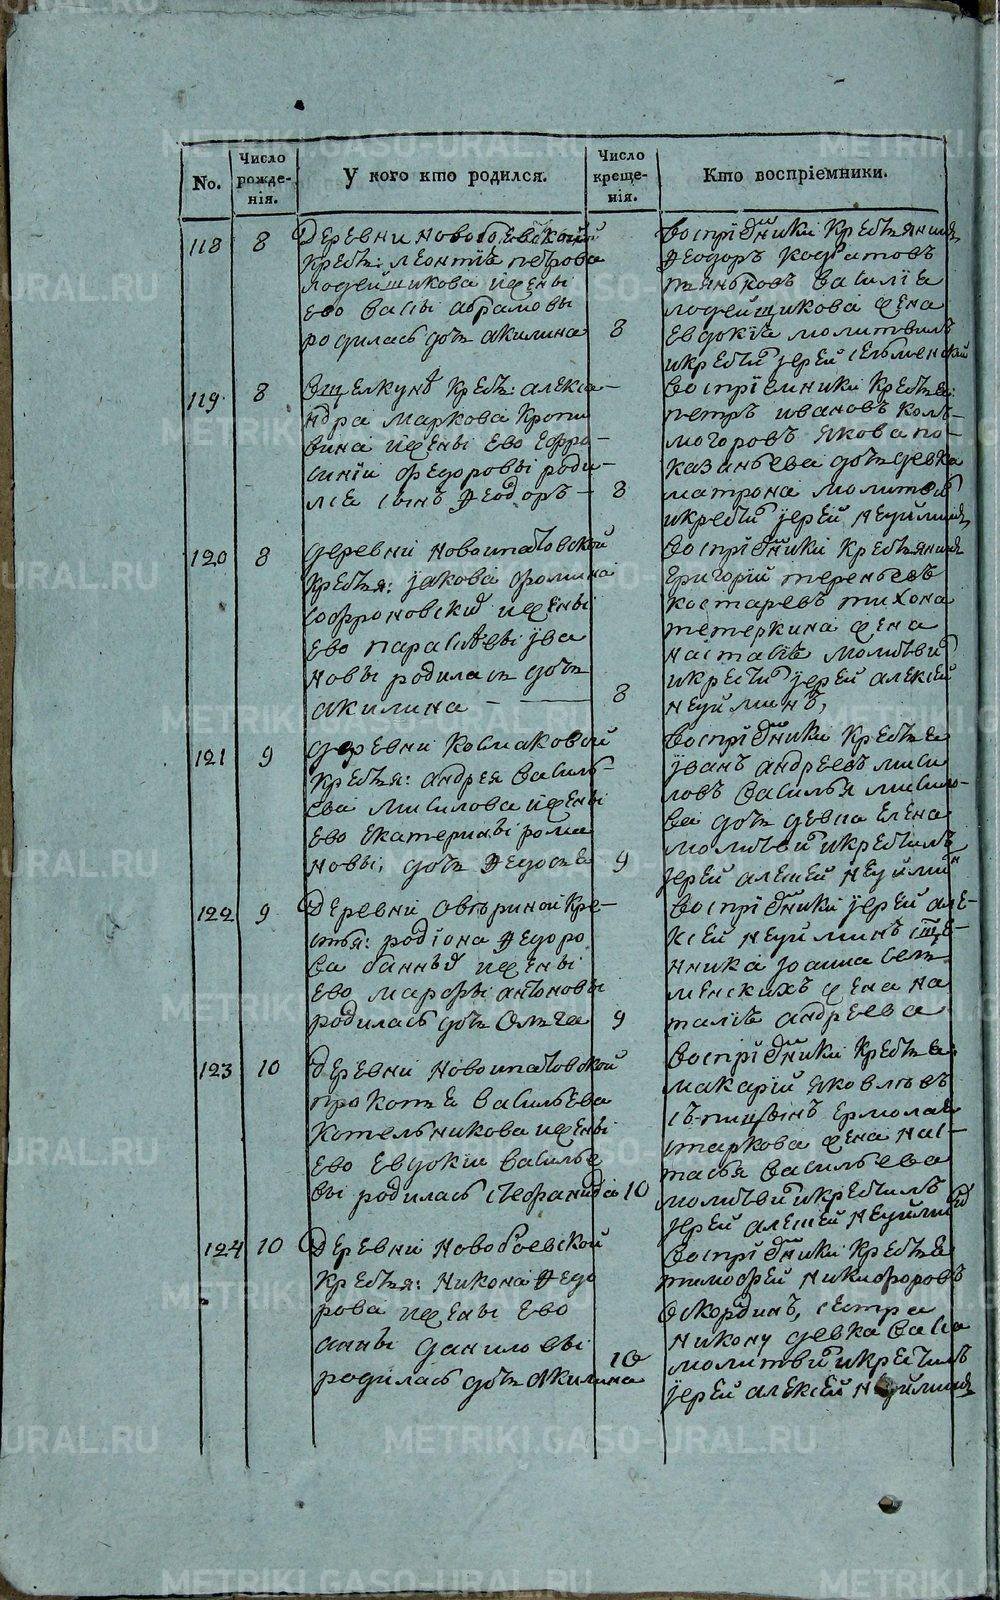 No.
Число рожде-нія.
У кого кто родился.
Число креще-нія.
Кто воспріемники.
118 8
Деревни новобоевской
крестья: леонтіѣ петрова
лодейщикова и жены
ево васы абрамовы
родилась дочь акилина 8
воспріемники крестьянинъ
Ѳеодоръ
василіа
лодейщикова жена
евдокіѣ молитвилъ
и крестилъ іерей
119 8
Вщелкунѣ крест: алекса-
ндра маркова кропи
вина и жены ево ефро-
синіи федоровы роди-
лса сынъ Ѳеодоръ - 8
воспріемники крестьѣ:
петръ ивановъ кол-
могоровъ якова по-
казаньева дочь девка
матрона молитвилъ
и крестилъ іерей неуйминъ
120 8
деревни новоипатовской
крестья: іакова фомина
софроновскихъ и жены
ево парасковьи іва
новы родилась дочь
акилина - 8
воспріемники крестьянинъ
григорій тереньевъ
костаревъ тихона
тетеркина жена
настасьѣ молитвилъ
и крестилъ іерей алексей
неуйминъ,
121 9
деревни космаковой
крестья: андрея василь-
ева мисилова и жены
ево екатерины рома
новы, дочь Ѳедосьѣ 9
воспріемники крестьѣ
іванъ андреевъ миси
ловъ василья мисило-
ва дочь девка елена
молитвилъ и крестилъ
іерей алексей неуйминъ
122 9
Деревни аверинской кре-
стья: родіона Ѳедоро
ва банныхъ и жены
ево марфы антоновы
родилась дочь Ольга 9
воспріемники іерей але-
ксей неуйминъ
нника іоанна сель-
менскихъ жена на
таліѣ андреева
123 10
Деревни новоипатовской
прокопьѣ васильева
котельникова и жены
ево евдокіи василье
вы родилась стефанида 10
воспріемники крестьѣ:
макарій яковлевъ
ермолая
старкова жена нас-
тасья васильева
молитвилъ и крестилъ
іерей алексей неуйминъ
124 10
Деревни новобоевской
крестья: никона Ѳедо
рова и жены ево
анны даниловы
родилась дочь акилина 10
воспріемники крестьѣ
тимофей никифоровъ
оскординъ, сестра
никону девка васа
молитвилъ и крестилъ
іерей алексей неуйминъ
METRIKI.GASO-URAL.RU